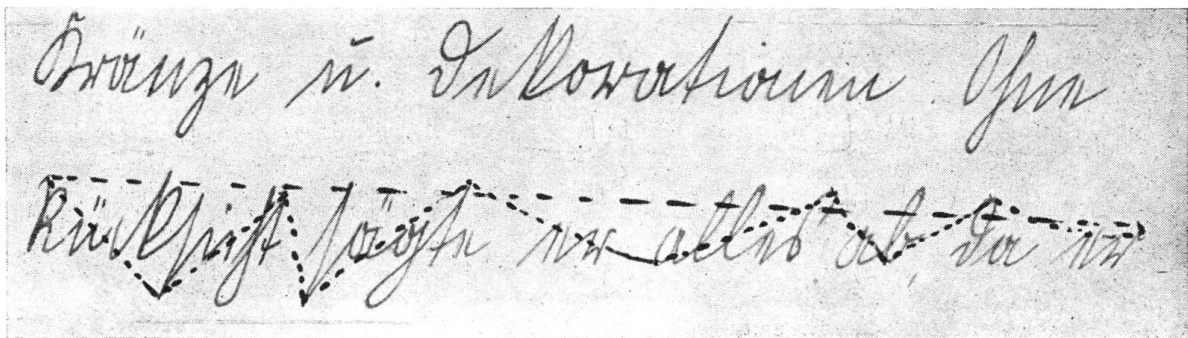 Kränze u. Dekorationen Ohne
Rücksicht sägte er alles ab, da er